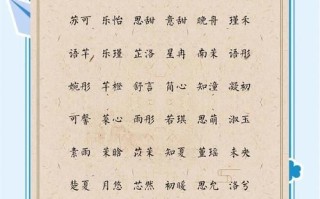 苏可 乐怡 思甜 意甜 晚舟 瑾禾
语芊 乐瑾 芷洛 星冉 南茉 语彤
婉彤 芊橙 舒言 简心 知潼 凝初
可馨 慕心 雨彤 若琪 思萌 淑玉
素雨 茉晗 苡茉 知夏 董瑶 未央
楚夏 月悠 芯然 初暖 思允 洛兮